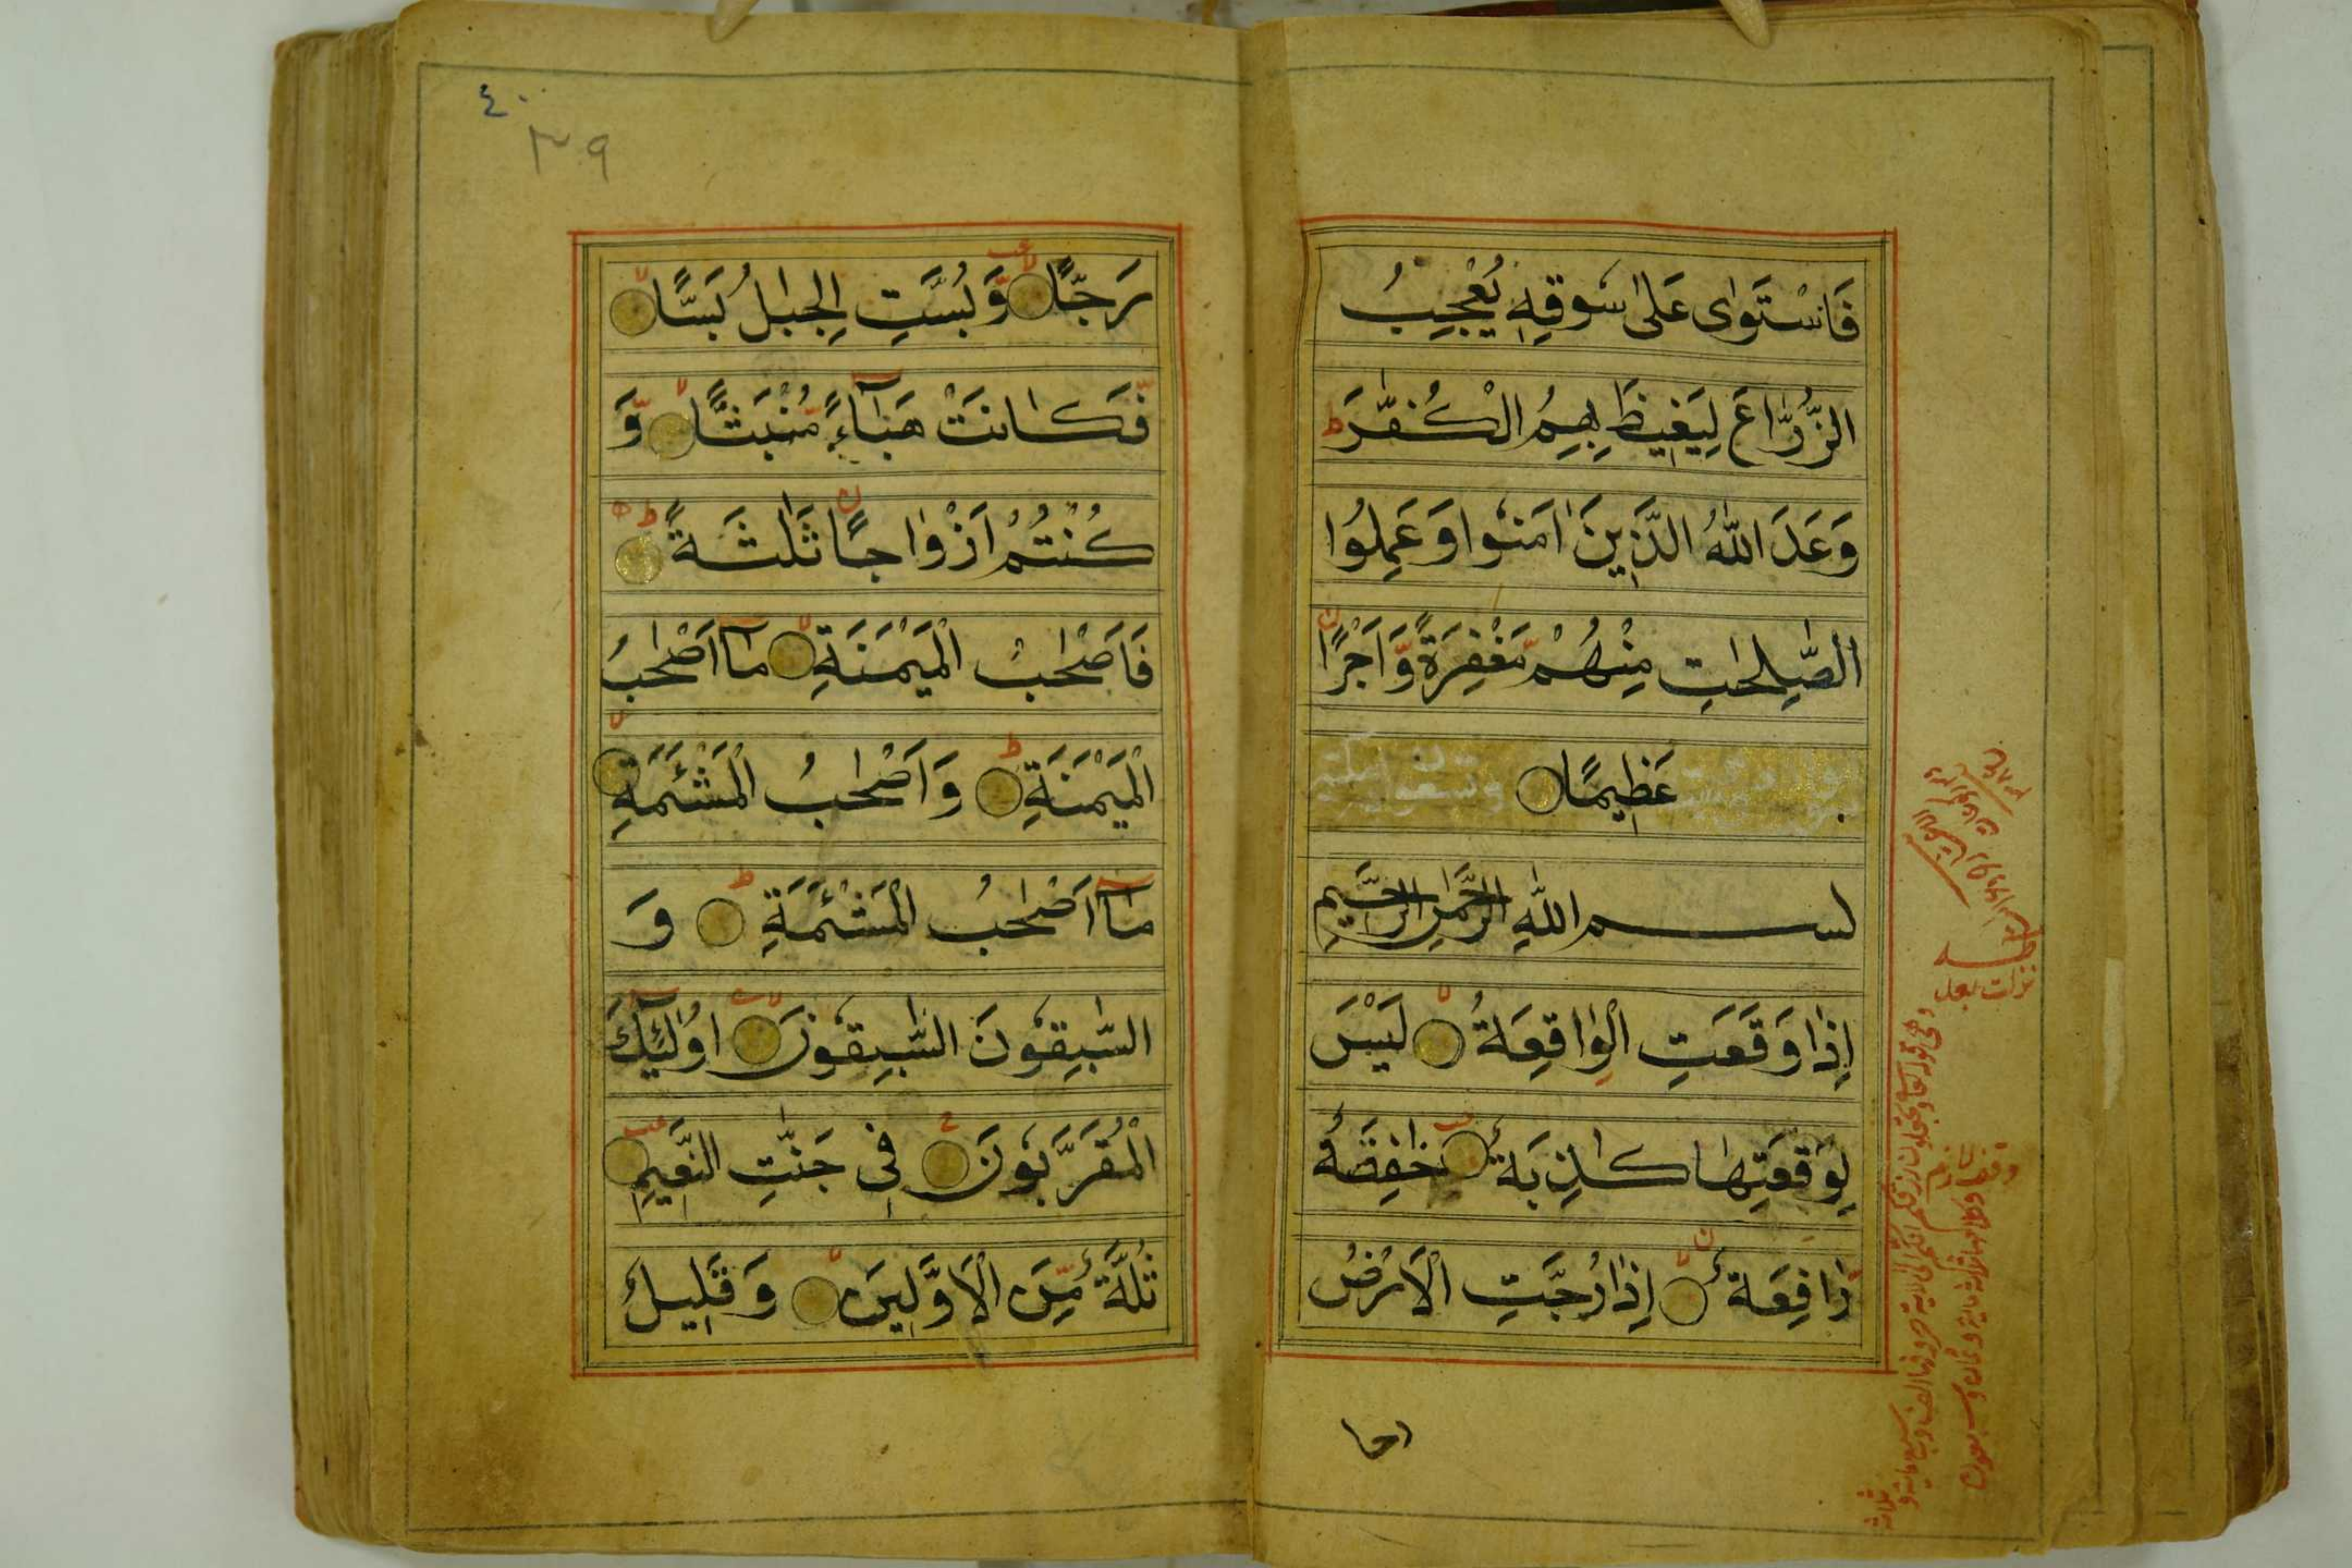 فَاسْتَوٰى عَلٰى سُوقِهٖ يُعْجِبُ
الزُّرَّاعَ لِيَغِيظَ بِهِمُ الْكُفَّرَ ط
وَعَدَ اللّٰهُ الَّذِينَ اٰمَنُوا وَعَمِلُوا
الصّٰلِحٰتِ مِنْهُمْ مَّغْفِرَةً وَّاَجْرًا
عَظِيمًا
بسم اللّٰهِ الرَّحْمٰنِ الرَّحِيمِ
اِذَا وَقَعَتِ الْوَاقِعَةُ لَيْسَ
لِوَقْعَتِهَا كَاذِبَةٌ خَافِضَةٌ
رَّافِعَةٌ اِذَا رُجَّتِ الْاَرْضُ
رجا
نزلت بعد
طه
ثلاثة
٤٠
٣٩
رَجًّا وَّبُسَّتِ الْجِبٰلُ بَسًّا
فَكَانَتْ هَبَآءً مُّنْبَثًّا وَّ
كُنْتُمْ اَزْوٰاجًا ثَلٰثَةً ط
فَاَصْحٰبُ الْمَيْمَنَةِ مَآ اَصْحٰبُ
الْمَيْمَنَةِ ط وَاَصْحٰبُ الْمَشْئَمَةِ
مَآ اَصْحٰبُ الْمَشْئَمَةِ ط وَ
السّٰبِقُونَ السّٰبِقُونَ اُولٰٓئِكَ
الْمُقَرَّبُونَ فِي جَنّٰتِ النَّعِيمِ
ثُلَّةٌ مِّنَ الْاَوَّلِينَ وَقَلِيلٌ